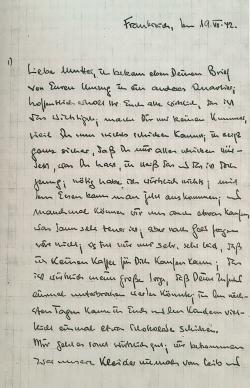 Frankreich, den 19.VII.42.
1)
Liebe Mutter, ich bekam eben Deinen Brief
von Eurem Umzug in ein anderes Quartier;
hoffentlich erholt Ihr Euch alle wirklich, das ist
das Wichtigste, mache Dir nur keinen Kummer,
weil Du mir nichts schicken kannst, ich weiß
ganz sicher, daß Du mir alles schicken
was Du hast, ich weiß das und das ist doch
genug; nötig habe ich wirklich nichts; mit
dem Essen kann man jetzt auskommen; und
manchmal können wir uns auch etwas kaufen,
was dann sehr teuer ist, aber nach Geld fragen
wir nicht; es tut mir nur sehr, sehr leid, daß
ich keinen Kaffee für Dich kaufen kann; das
ist wirklich meine große Sorge, daß Deine
einmal unterbrochen werden könnte; in den näch-
sten Tagen kann ich Euch und den Kindern viel-
leicht einmal etwas Schokolade schicken.
Mir geht es sonst wirklich gut; wir bekommen
zwar unsere Kleider niemals vom Leib und